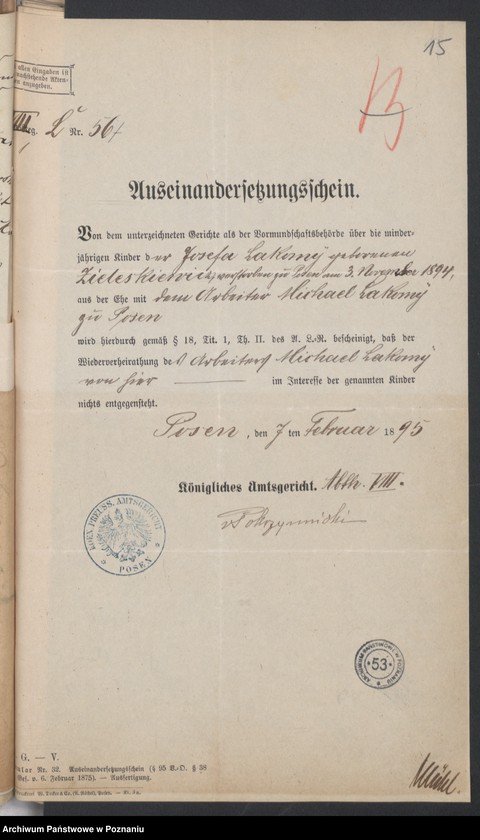 15
allen Eingaben ist
nachstehende Akten-
en anzugeben.
VIII Reg. L Nr. 56
Auseinandersetzungsschein.
Von dem unterzeichneten Gerichte als der Vormundschaftsbehörde über die minder-
jährigen Kinder der Josefa Lakomý geborenen
Zideskiewicz, verstorben zu Posen am 3. November 1894,
aus der Ehe mit dem Arbeiter Michael Lakomý
zu Posen
wird hierdurch gemäß § 18, Tit. 1, Th. II. des A. L.-R. bescheinigt, daß der
Wiederverheirathung des Arbeiters Michael Lakomý
von hier im Interesse der genannten Kinder
nichts entgegensteht.
Posen, den 7 ten Februar 1895
Königliches Amtsgericht. Abth. VIII.
KOEN. PREUSS. AMTSGERICHT
* POSEN *
ARCHIWUM PAŃSTWOWE W POZNANIU
* 53 *
G. — V.
ular Nr. 32. Auseinandersetzungsschein (§ 95 B.-O. § 38
Ges. v. 6. Februar 1875). — Ausfertigung.
Archiwum Państwowe w Poznaniu
Archiwum Państwowe w Poznaniu